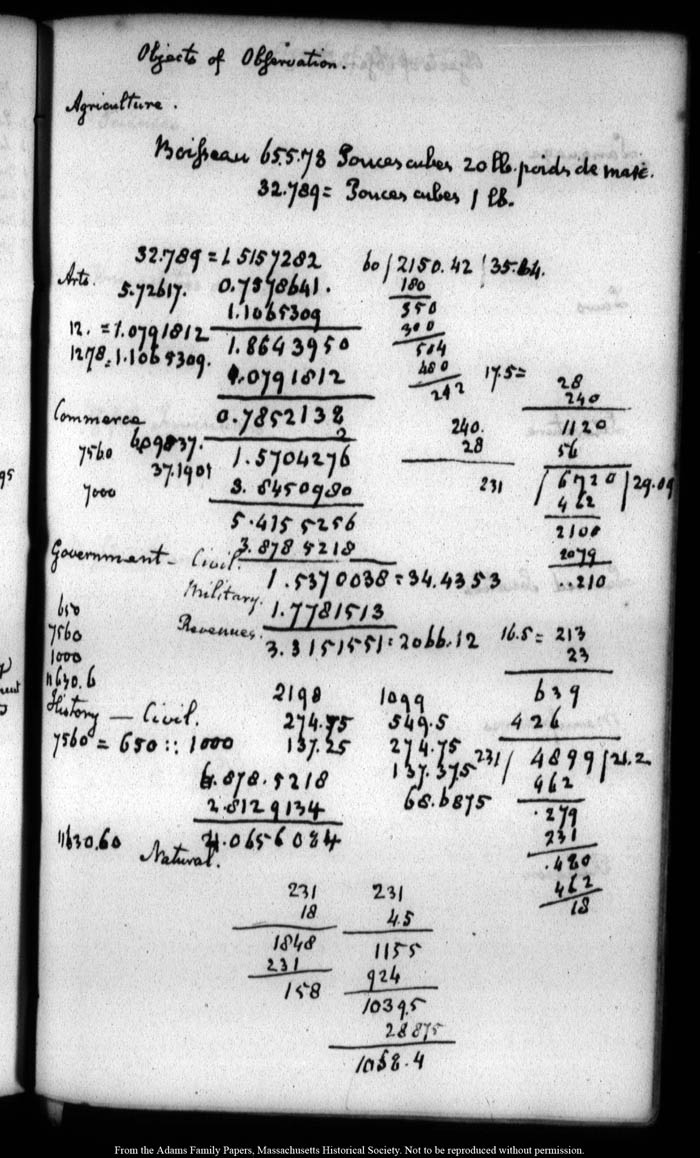 Objects of Observation.
Agriculture.
Boisseau 655.78 Pouces cubes 20 lb. poids de marc.
32.789 = Pouces cubes 1 lb.
32.789 = 1.5157282
60 / 2150.42 / 35.84.
Arts.
5.72617.
0.7578641.
180
1.1065309
350
12. = 1.0791812
300
1278 = 1.1065309.
1.8643950
504
1.0791812
480
17.5 =
28
242
240
Commerce
0.7852138
240.
1120
6.09837.
2
28
56
7560
1.5704276
37.1901
231 / 6720 / 29.09
7000
3.8450980
462
5.4155256
2100
3.8785218
2079
Government - Civil.
1.5370038 = 34.4353
..210
Military.
1.7781513
650
Revenues.
3.3151551 = 2066.12
16.5 = 213
7560
23
1000
11630.6
639
2198
1099
426
History - Civil.
274.75
549.5
7560 = 650 :: 1000
137.25
274.75
231 / 4899 / 21.2
137.375
462
6.878.5218
68.6875
.279
2.8129134
231
11630.60
4.0656084
.480
Natural.
462
18
231
231
18
4.5
1848
1155
231
924
158
1039.5
28875
1058.4
From the Adams Family Papers, Massachusetts Historical Society. Not to be reproduced without permission.